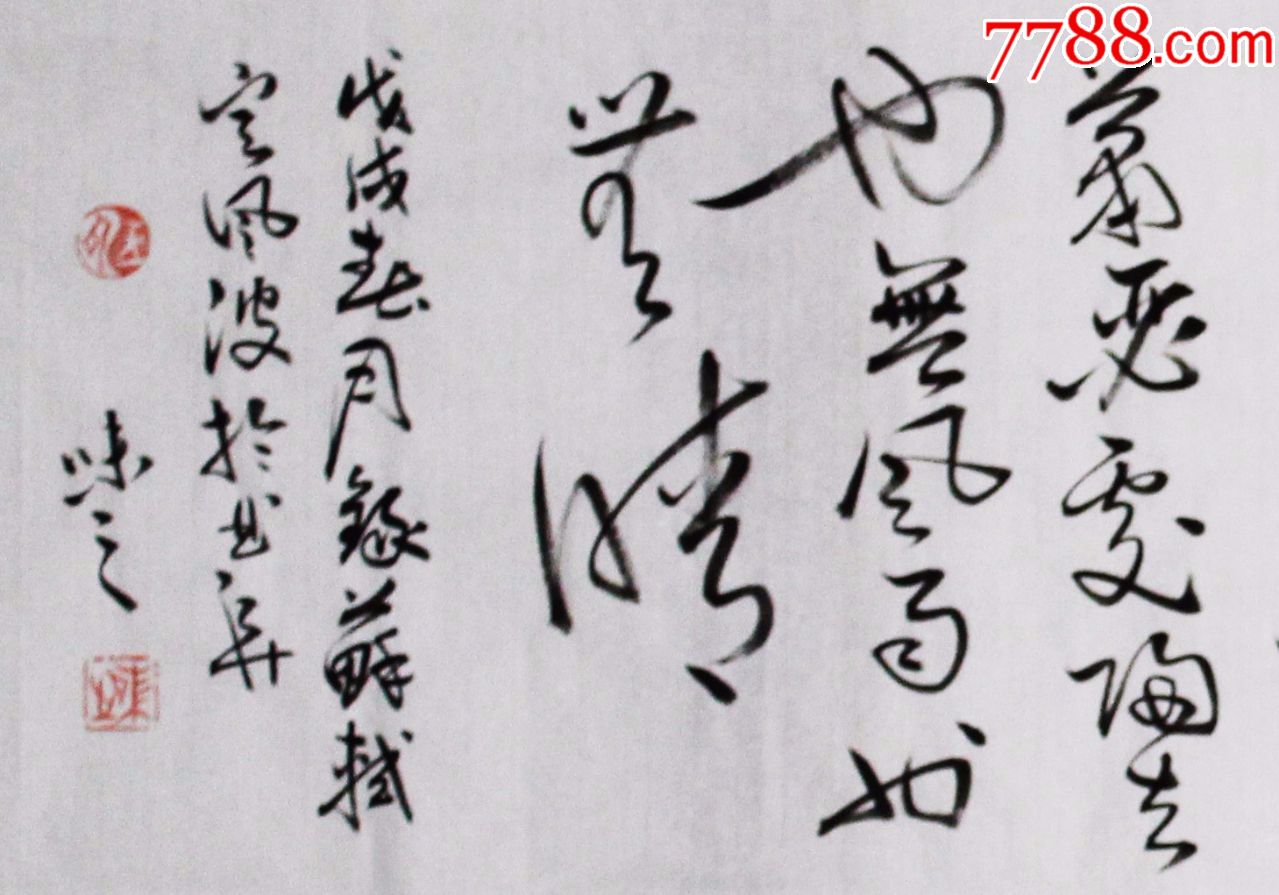 7788.com
蕭瑟處歸去
也無風雨也
無晴
戊戌春月錄蘇軾
定風波於曲阜
味之